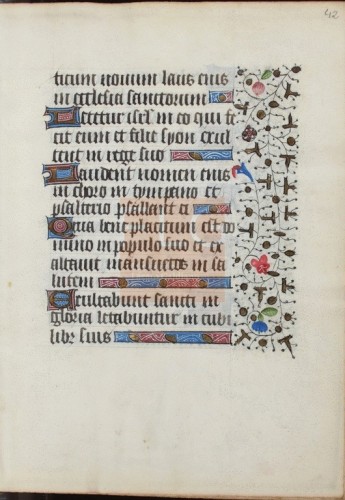 42
ticum nouum laus eius
in ecclesia sanctorum
Letetur isrl in eo qui fe
cit eum et filie syon exul
tent in rege suo
Laudent nomen eius
in choro in tympano et
psalterio psallant ei
Quia bene placitum est do
mino in populo suo et ex
altauit mansuetos in sa
lutem
Exultabunt sancti in
gloria letabuntur in cubi
libꝰ suis